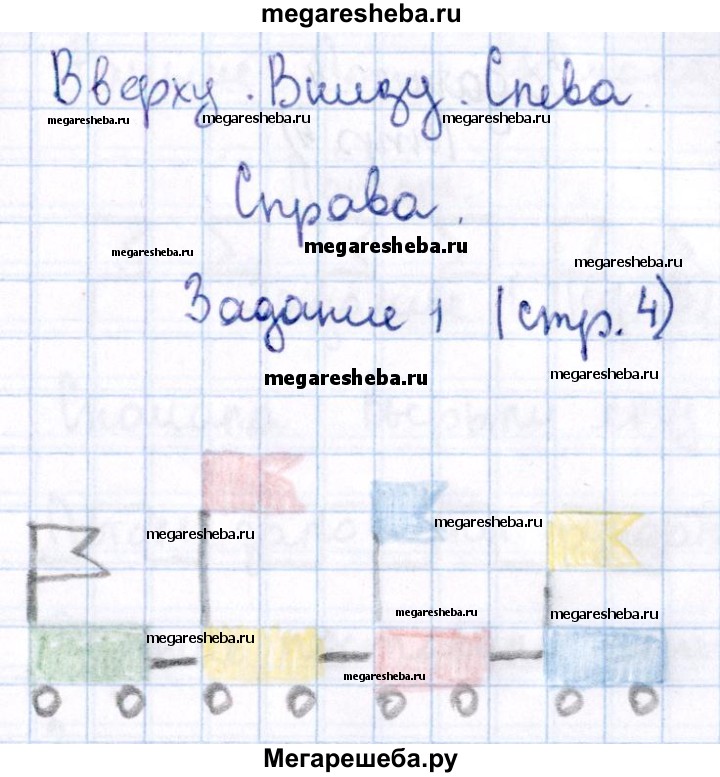 megaresheba.ru
Вверху. Внизу. Слева.
megaresheba.ru megaresheba.ru megaresheba.ru
Справа.
megaresheba.ru megaresheba.ru megaresheba.ru
Задание 1 (стр. 4)
megaresheba.ru megaresheba.ru
megaresheba.ru megaresheba.ru
megaresheba.ru megaresheba.ru
megaresheba.ru
megaresheba.ru
Мегарешеба.ру